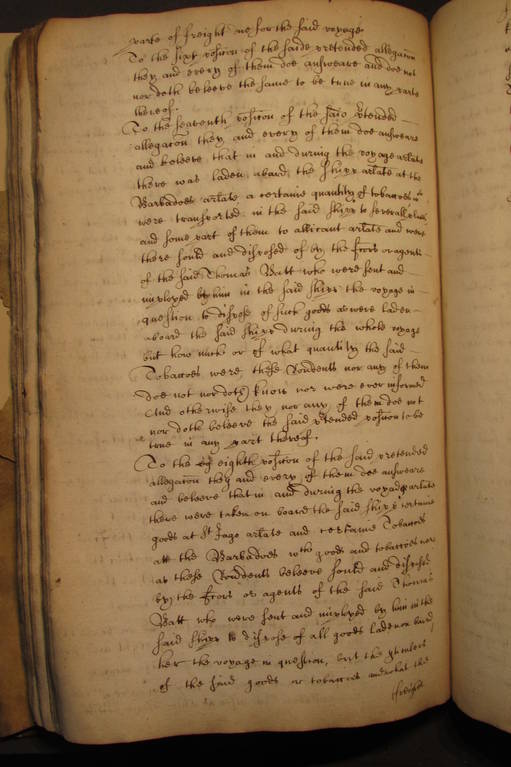 parte of freight due for the said voyage
To the sixt position of the saide pretended allegacon
they and every of them doe answeare and doe not
nor doth beleeve the same to be true in any parte
thereof.
To the seaventh position of the said ptended
allegacon they and every of them doe answeare
and beleeve that in and during the voyage arlate
there was laden aboard the shipp arlate at the
Barbadoes arlate a certaine quantity of tobaccoes
were transported in the said shipp to severall places
and some part of them to Allicant arlate and were
there sould and disposed of by the ffcors or agents
of the said Thomas Batt who were sent and
imployed by him in the said shipp the voyage in
question to dispose of such goods as were laden
aboard the said shipp during the whole voyage
but how much or of what quantity the said
Tobaccoes were these Rondents nor any of them
doe not nor doth know nor were ever informed
And otherwise they nor any of them doe not
nor doth beleeve the said ptended position to be
true in any part thereof.
To the eighth position of the said pretended
allegacon they and every of them doe answeare
and beleeve that in and during the voyage arlate
there were taken on board the said shipp certaine
goods at St Jago arlate and certaine Tobaccoes
att the Barbadoes wch goods and tobaccoes were
as these Rondents beleeve sould and disposed
by the ffcors or agents of the said Thomas
Batt who were sent and imployed by him in the
said shipp to dispose of all goods laden on board
her the voyage in question, but the
of the said goods or tobaccoes and what the
freight